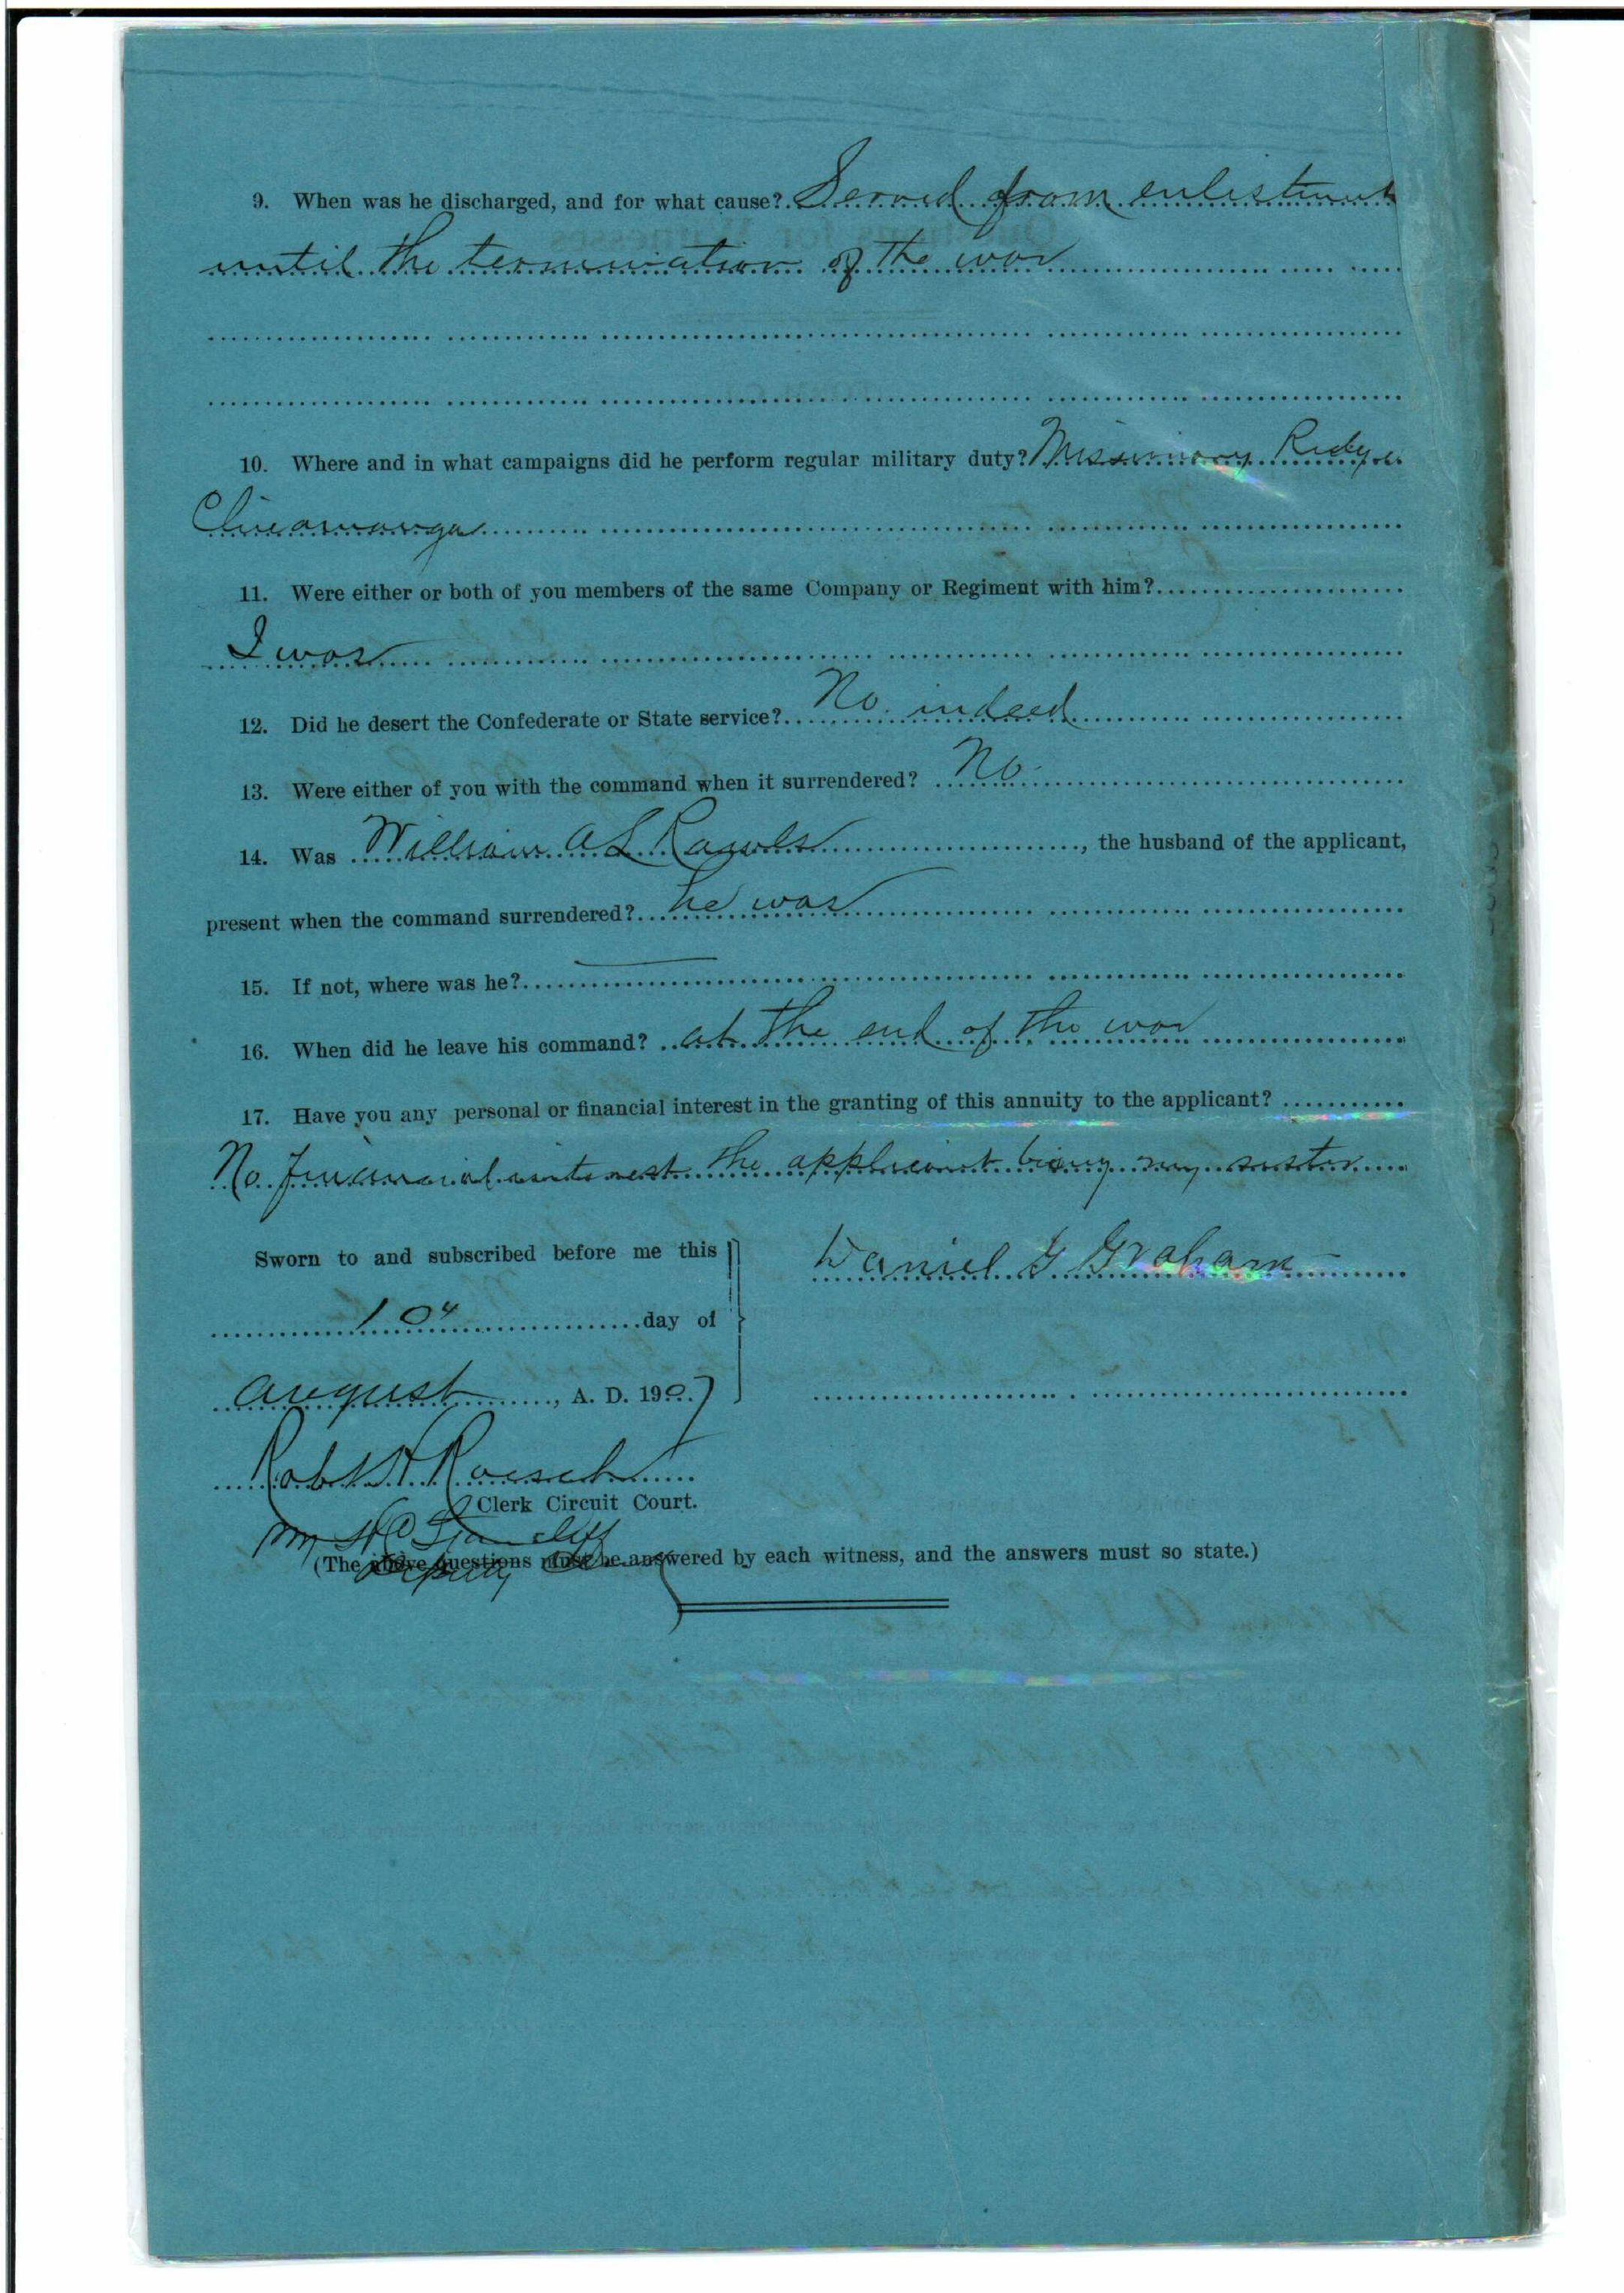 9. When was he discharged, and for what cause? Served from enlistment
until the termination of the war
10. Where and in what campaigns did he perform regular military duty? Missionary Ridge
Chicamauga
11. Were either or both of you members of the same Company or Regiment with him?
I was
12. Did he desert the Confederate or State service? No indeed
13. Were either of you with the command when it surrendered? No
14. Was William A L Rawls, the husband of the applicant,
present when the command surrendered? he was
15. If not, where was he? —
16. When did he leave his command? at the end of the war
17. Have you any personal or financial interest in the granting of this annuity to the applicant?
No financial interest the applicant being my sister
Sworn to and subscribed before me this
Daniel G Graham
10th day of
August, A. D. 1907
Robt H Roesch
Clerk Circuit Court.
(The above questions must be answered by each witness, and the answers must so state.)
Deputy